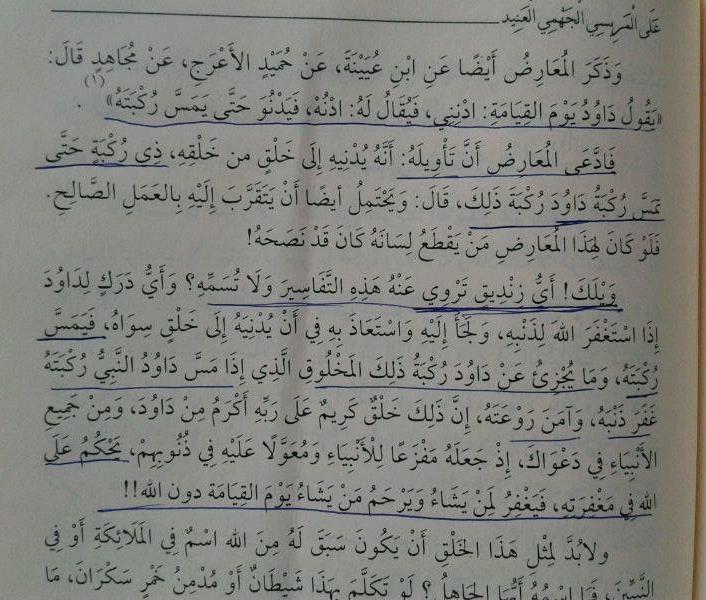 عَلَى الْمَرِيسِي الْجَهْمِي الْعَنِيد
وَذَكَرَ الْمُعَارِضُ أَيْضًا عَنِ ابْنِ عُيَيْنَةَ، عَنْ حُمَيْدٍ الأَعْرَجِ، عَنْ مُجَاهِدٍ قَالَ:
«يَقُولُ دَاوُدُ يَوْمَ القِيَامَةِ: ادْنِنِي، فَيُقَالُ لَهُ: ادْنُهْ، فَيَدْنُوَ حَتَّى يَمَسَّ رُكْبَتَهُ»(١).
فَادَّعَى الْمُعَارِضُ أَنَّ تَأْوِيلَهُ: أَنَّهُ يُدْنِيهِ إِلَى خَلْقٍ من خَلْقِهِ، ذِي رُكْبَةٍ حَتَّى
تَمَسَّ رُكْبَةُ دَاوُدَ رُكْبَةَ ذَلِكَ، قَالَ: وَيَحْتَمِلُ أيضًا أَنْ يَتَقَرَّبَ إِلَيْهِ بِالعَمَلِ الصَّالِحِ.
فَلَوْ كَانَ لِهَذَا الْمُعَارِضِ مَنْ يَقْطَعُ لِسَانَهُ كَانَ قَدْ نَصَحَهُ!
وَيْلَكَ! أَيُّ زِنْدِيقٍ تَرْوِي عَنْهُ هَذِهِ التَّفَاسِيرَ وَلَا تُسَمِّهِ؟ وَأَيُّ دَرَكٍ لِدَاوُدَ
إِذَا اسْتَغْفَرَ اللهَ لِذَنْبِهِ، وَلَجَأَ إِلَيْهِ وَاسْتَعَاذَ بِهِ فِي أَنْ يُدْنِيَهُ إِلَى خَلْقٍ سِوَاهُ، فَيَمَسَّ
رُكْبَتَهُ، وَمَا يُجْزِئُ عَنْ دَاوُدَ رُكْبَةُ ذَلِكَ الْمَخْلُوقِ الَّذِي إِذَا مَسَّ دَاوُدُ النَّبِيُّ رُكْبَتَهُ
غَفَرَ ذَنْبَهُ، وَآمَنَ رَوْعَتَهُ، إِنَّ ذَلِكَ خَلْقٌ كَرِيمٌ عَلَى رَبِّهِ أَكْرَمُ مِنْ دَاوُدَ، وَمِنْ جَمِيعِ
الأَنْبِيَاءِ فِي دَعْوَاكَ، إِذْ جَعَلَهُ مَفْزَعًا لِلْأَنْبِيَاءِ وَمُعَوَّلًا عَلَيْهِ فِي ذُنُوبِهِمْ، يَحْكُمُ عَلَى
الله فِي مَغْفِرَتِهِ، فَيَغْفِرُ لِمَنْ يَشَاءُ وَيَرْحَمُ مَنْ يَشَاءُ يَوْمَ القِيَامَة دون الله!!
ولابُدَّ لِمِثْلِ هَذَا الخَلْقِ أَنْ يَكُونَ سَبَقَ لَهُ مِنَ الله اسْمٌ فِي الْمَلَائِكَةِ أَوْ فِي
النَّبِيِّينَ، فَمَا اسْمُهُ أَيُّهَا الجَاهِلُ؟ لَوْ تَكَلَّمَ بِهَذَا شَيْطَانٌ أَوْ مُدْمِنُ خَمْرٍ سَكْرَانَ، مَا